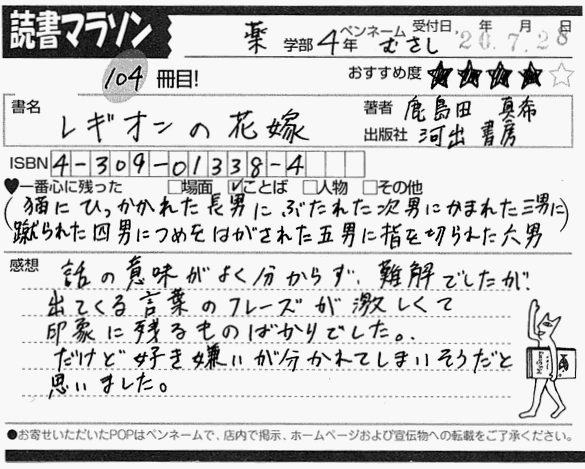 読書マラソン
薬 学部 4年 ペンネーム むさし 受付日 '20.年7.月28日
104 冊目! おすすめ度 ★★★★☆
書名 レギオンの花嫁
著者 鹿島田 真希
出版社 河出書房
ISBN 4-309-01338-4
♥一番心に残った □場面 ☑ことば □人物 □その他
(猫にひっかかれた長男に ぶたれた次男にかまれた三男に)
蹴られた四男につめをはがされた五男に指を切られた六男
感想 話の意味がよく分からず、難解でしたが、
出てくる言葉のフレーズが激しくて
印象に残るものばかりでした。
だけど好き嫌いが分かれてしまいそうだと
思いました。
●お寄せいただいたPOPはペンネームで、店内で掲示、ホームページおよび宣伝物への転載をご了承ください。